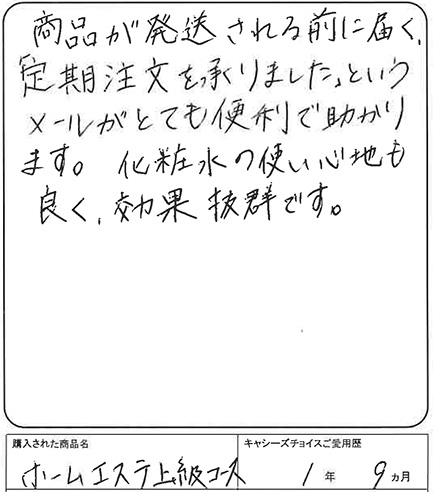 商品が発送される前に届く、
「定期注文を承りました」という
メールがとても便利で助かり
ます。化粧水の使い心地も
良く、効果抜群です。
購入された商品名
キャシーズチョイスご愛用歴
ホームエステ上級コース
1年 9ヵ月